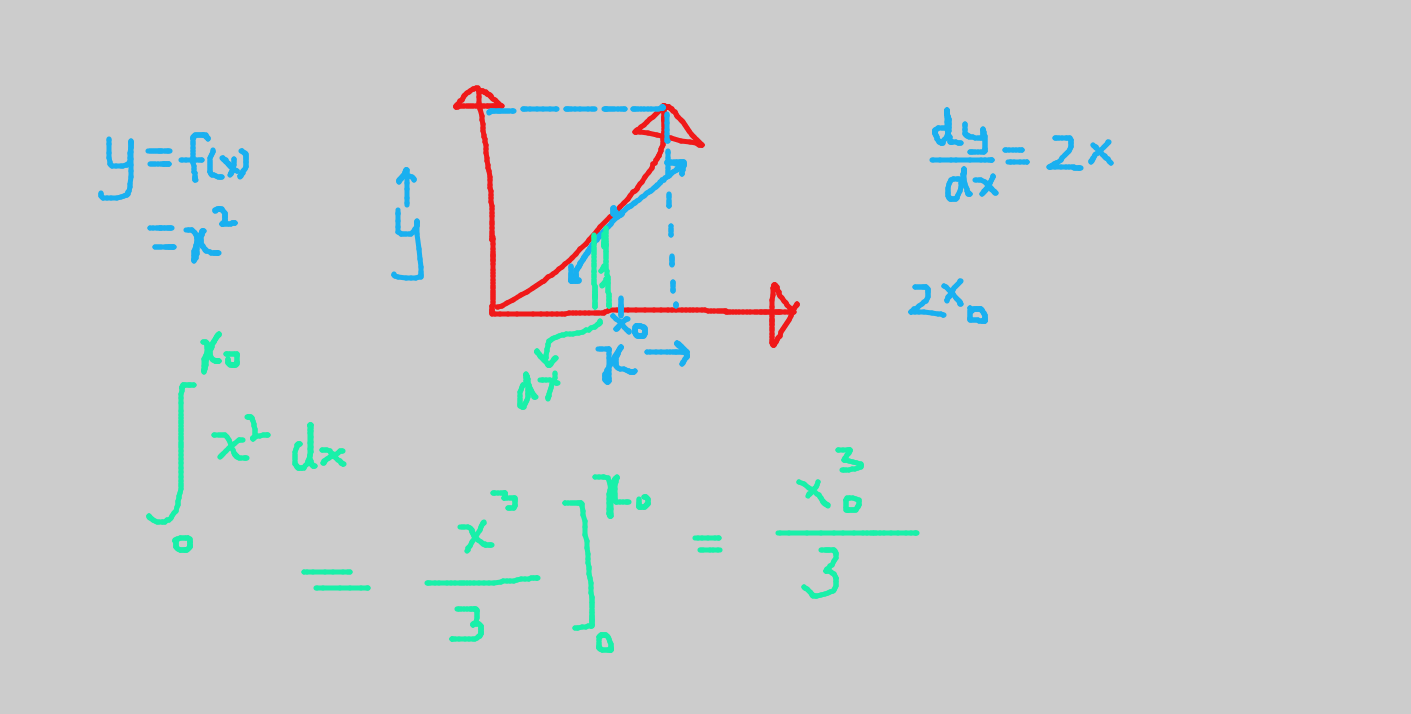 y = f(x)
= x²
y
x₀
x
dx
dy/dx = 2x
2x₀
∫₀^x₀ x² dx
= x³/3 ]₀^x₀ = x₀³/3